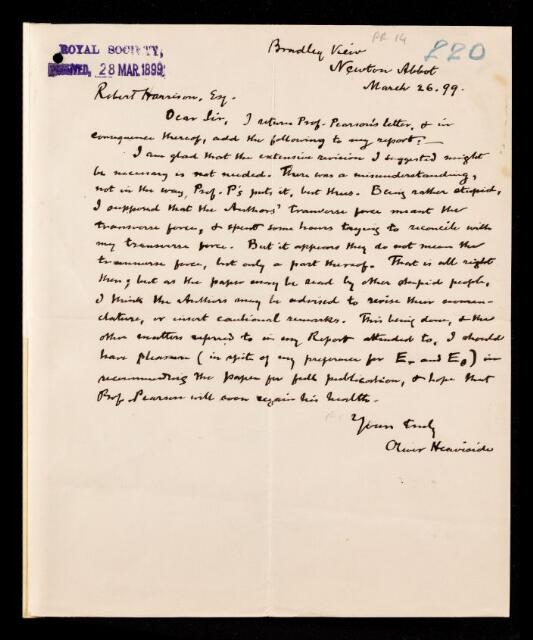 PR 14
220
ROYAL SOCIETY,
RECEIVED, 28 MAR. 1899
Bradley View
Newton Abbot
March 26. 99.
Robert Harrison, Esq.
Dear Sir, I return Prof. Pearson's letter, & in
consequence thereof, add the following to my report:—
I am glad that the extensive revision I suggested might
be necessary is not needed. There was a misunderstanding,
not in the way, Prof. P's puts it, but thus. Being rather stupid,
I supposed that the Authors' tranverse force meant the
transverse force, & spent some hours trying to reconcile with
my transverse force. But it appears they do not mean the
transverse force, but only a part thereof. That is all right
then; but as the paper may be read by other stupid people,
I think the Authors may be advised to revise their nomen-
clature, or insert cautional remarks. This being done, & the
other matters referred to in my Report attended to, I should
have pleasure (in spite of my preference for Er and Eθ) in
recommending the paper for full publication, & hope that
Prof. Pearson will soon regain his health.
Yours truly
Oliver Heaviside